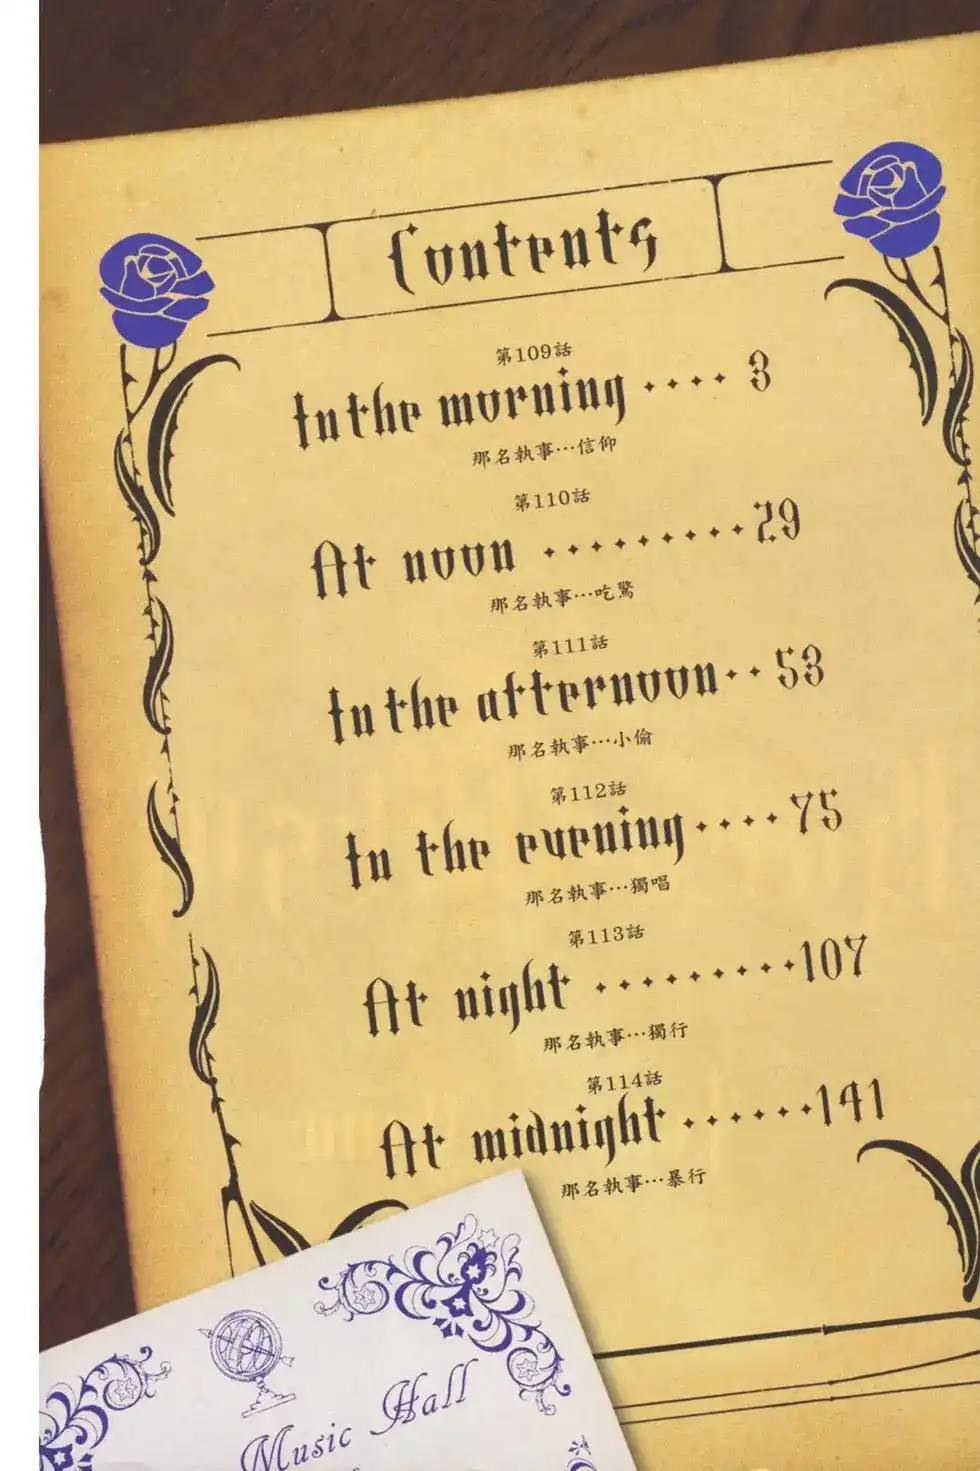 Contents
第109話
In the morning ···· 3
那名執事…信仰
第110話
At noon ········· 29
那名執事…吃驚
第111話
In the afternoon ·· 53
那名執事…小偷
第112話
In the evening ···· 75
那名執事…獨唱
第113話
At night ········· 107
那名執事…獨行
第114話
At midnight ······ 141
那名執事…暴行
Music Hall